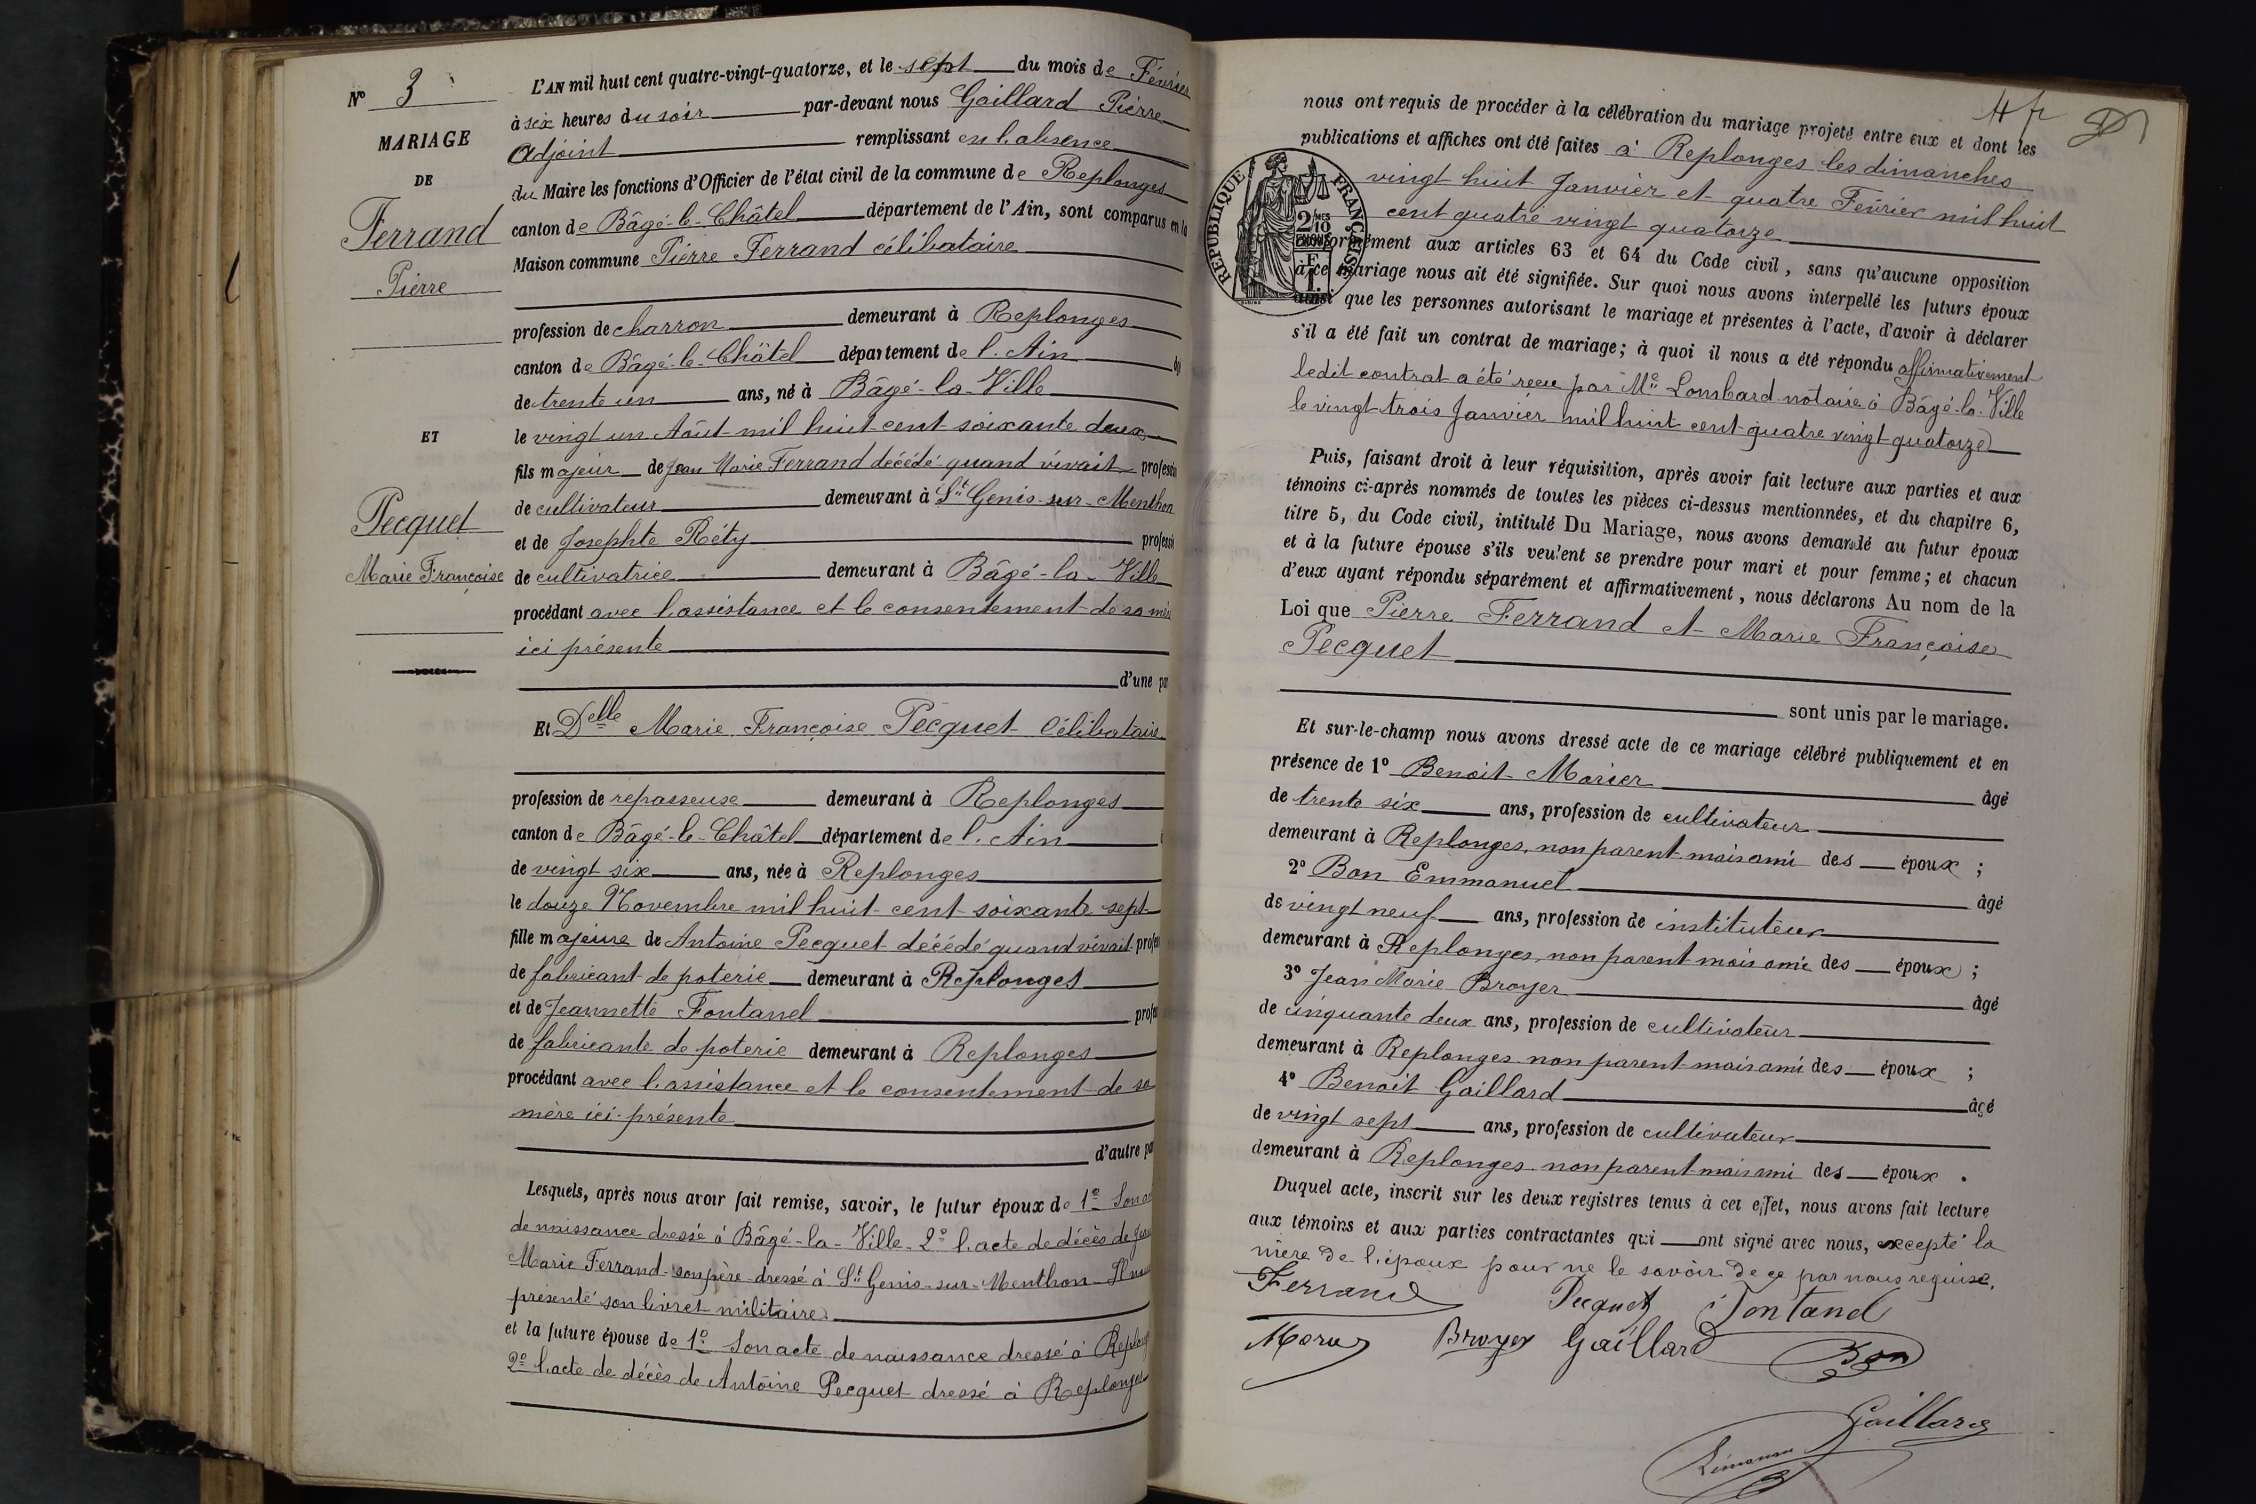 N° 3
MARIAGE
DE
Ferrand
Pierre
ET
Pecquet
Marie Françoise
L'AN mil huit cent quatre-vingt-quatorze, et le sept du mois de Février
à six heures du soir par-devant nous Gaillard Pierre
Adjoint remplissant en l'absence
du Maire les fonctions d'Officier de l'état civil de la commune de Replonges
canton de Bâgé-le-Châtel département de l'Ain, sont comparus en la
Maison commune Pierre Ferrand célibataire
profession de charron demeurant à Replonges
canton de Bâgé-le-Châtel département de l'Ain âgé
de trente un ans, né à Bâgé-la-Ville
le vingt un Août mil huit cent soixante deux
fils majeur de Jean Marie Ferrand décédé quand vivait profession
de cultivateur demeurant à St Genis-sur-Menthon
et de Josephte Réty profession
de cultivatrice demeurant à Bâgé-la-Ville
procédant avec l'assistance et le consentement de sa mère
ici présente
d'une par
Et Delle Marie Françoise Pecquet Célibataire
profession de repasseuse demeurant à Replonges
canton de Bâgé-le-Châtel département de l'Ain
de vingt six ans, née à Replonges
le douze Novembre mil huit cent soixante sept
fille majeure de Antoine Pecquet décédé quand vivait profes
de fabricant de poterie demeurant à Replonges
et de Jeannette Fontanel profes
de fabricante de poterie demeurant à Replonges
procédant avec l'assistance et le consentement de sa
mère ici présente
d'autre pa
Lesquels, après nous avoir fait remise, savoir, le futur époux de 1° Son acte
de naissance dressé à Bâgé-la-Ville 2° l'acte de décès de Jean
Marie Ferrand son père dressé à St Genis-sur-Menthon Il nous
présenté son livret militaire
et la future épouse de 1° Son acte de naissance dressé à Replonges
2° l'acte de décès de Antoine Pecquet dressé à Replonges
4 fr
nous ont requis de procéder à la célébration du mariage projeté entre eux et dont les
publications et affiches ont été faites à Replonges les dimanches
vingt huit Janvier et quatre Février mil huit
cent quatre vingt quatorze
REPUBLIQUE FRANÇAISE
conformément aux articles 63 et 64 du Code civil, sans qu'aucune opposition
à ce mariage nous ait été signifiée. Sur quoi nous avons interpellé les futurs époux
ainsi que les personnes autorisant le mariage et présentes à l'acte, d'avoir à déclarer
s'il a été fait un contrat de mariage; à quoi il nous a été répondu affirmativement
ledit contrat a été reçu par Me Lombard notaire à Bâgé-la-Ville
le vingt trois Janvier mil huit cent quatre vingt quatorze
Puis, faisant droit à leur réquisition, après avoir fait lecture aux parties et aux
témoins ci-après nommés de toutes les pièces ci-dessus mentionnées, et du chapitre 6,
titre 5, du Code civil, intitulé Du Mariage, nous avons demandé au futur époux
et à la future épouse s'ils veulent se prendre pour mari et pour femme; et chacun
d'eux ayant répondu séparément et affirmativement, nous déclarons Au nom de la
Loi que Pierre Ferrand et Marie Françoise
Pecquet
sont unis par le mariage.
Et sur-le-champ nous avons dressé acte de ce mariage célébré publiquement et en
présence de 1° Benoit Morier âgé
de trente six ans, profession de cultivateur
demeurant à Replonges, non parent mais ami des époux ;
2° Bon Emmanuel âgé
de vingt neuf ans, profession de instituteur
demeurant à Replonges, non parent mais ami des époux ;
3° Jean Marie Broyer âgé
de cinquante deux ans, profession de cultivateur
demeurant à Replonges non parent mais ami des époux ;
4° Benoit Gaillard âgé
de vingt sept ans, profession de cultivateur
demeurant à Replonges non parent mais ami des époux .
Duquel acte, inscrit sur les deux registres tenus à cet effet, nous avons fait lecture
aux témoins et aux parties contractantes qui ont signé avec nous, excepté la
mère de l'époux pour ne le savoir de ce par nous requise.
Ferrand Pecquet Fontanel
Broyer Gaillard Bon
Gaillard